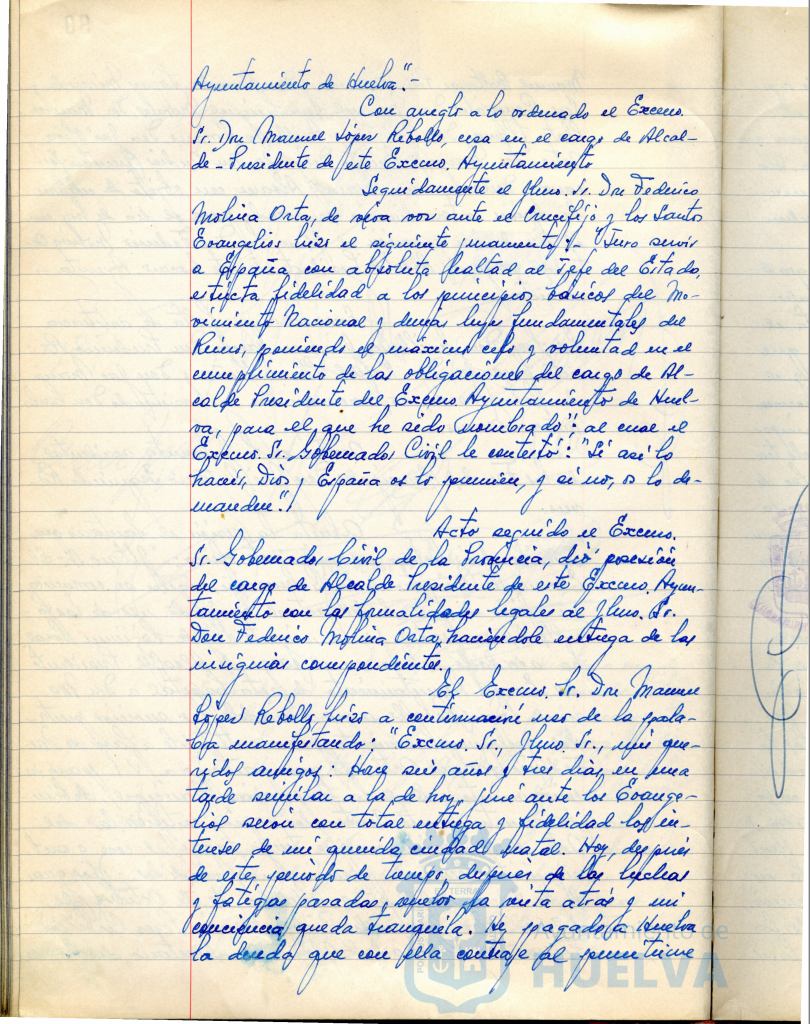 Ayuntamiento de Huelva".-
Con arreglo a lo ordenado el Excmo.
Sr. Don Manuel López Rebollo, cesa en el cargo de Alcal-
de-Presidente de este Excmo. Ayuntamiento
Seguidamente el Ilmo. Sr. Don Federico
Molina Orta, de viva voz ante el Crucifijo y los Santos
Evangelios hizo el siguiente juramento:- "Juro servir
a España con absoluta lealtad al Jefe del Estado,
estricta fidelidad a los principios básicos del Mo-
vimiento Nacional y demás leyes fundamentales del
Reino, poniendo el máximo celo y voluntad en el
cumplimiento de las obligaciones del cargo de Al-
calde Presidente del Excmo. Ayuntamiento de Huel-
va, para el que he sido nombrado"; al cual el
Excmo. Sr. Gobernador Civil le contestó: "Si así lo
haceis, Dios y España os lo premien, y si no, os lo de-
manden".
Acto seguido el Excmo.
Sr. Gobernador Civil de la Provincia, dió posesión
del cargo de Alcalde Presidente de este Excmo. Ayun-
tamiento con las formalidades legales al Ilmo. Sr.
Don Federico Molina Orta, haciéndole entrega de las
insignias correspondientes.
El Excmo. Sr. Don Manuel
López Rebollo, hizo a continuación uso de la pala-
bra manifestando: "Excmo. Sr., Ilmo. Sr., mis que-
ridos amigos: Hace seis años y tres dias, en una
tarde similar a la de hoy, juré ante los Evange-
lios servir con total entrega y fidelidad los in-
tereses de mi querida ciudad natal. Hoy, después
de este periodo de tiempo, después de las luchas
y fatigas pasadas, vuelvo la vista atrás y mi
conciencia queda tranquila. He pagado a Huelva
la deuda que con ella contraje al permitirme
Ayuntamiento de
HUELVA